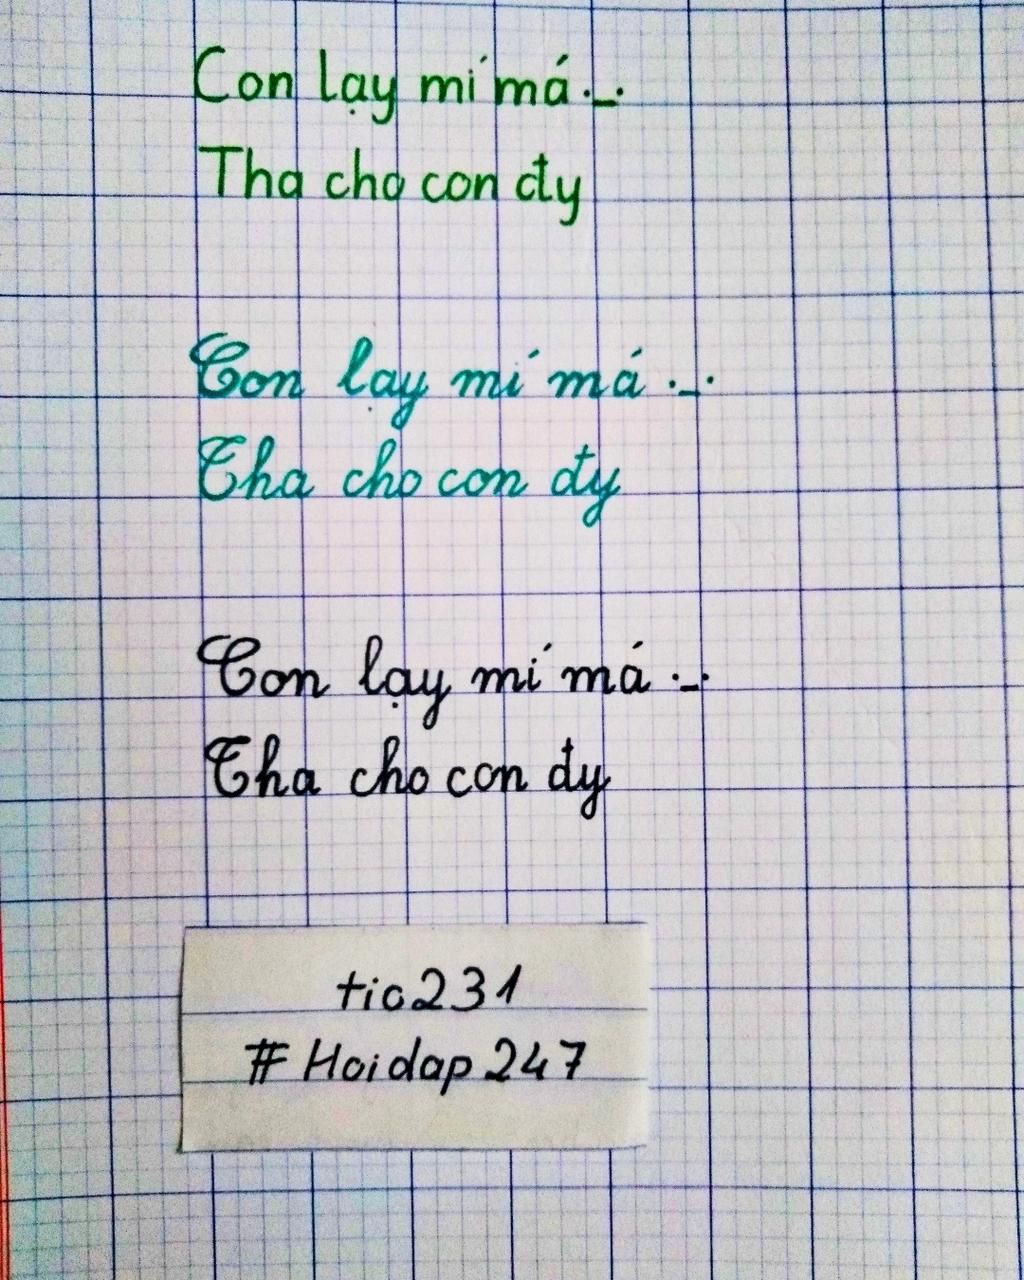 Con lạy mí má ._.
Tha cho con đy
Con lạy mí má ._.
Tha cho con đy
Con lạy mí má ._.
Tha cho con đy
tic231
# Hoidap247